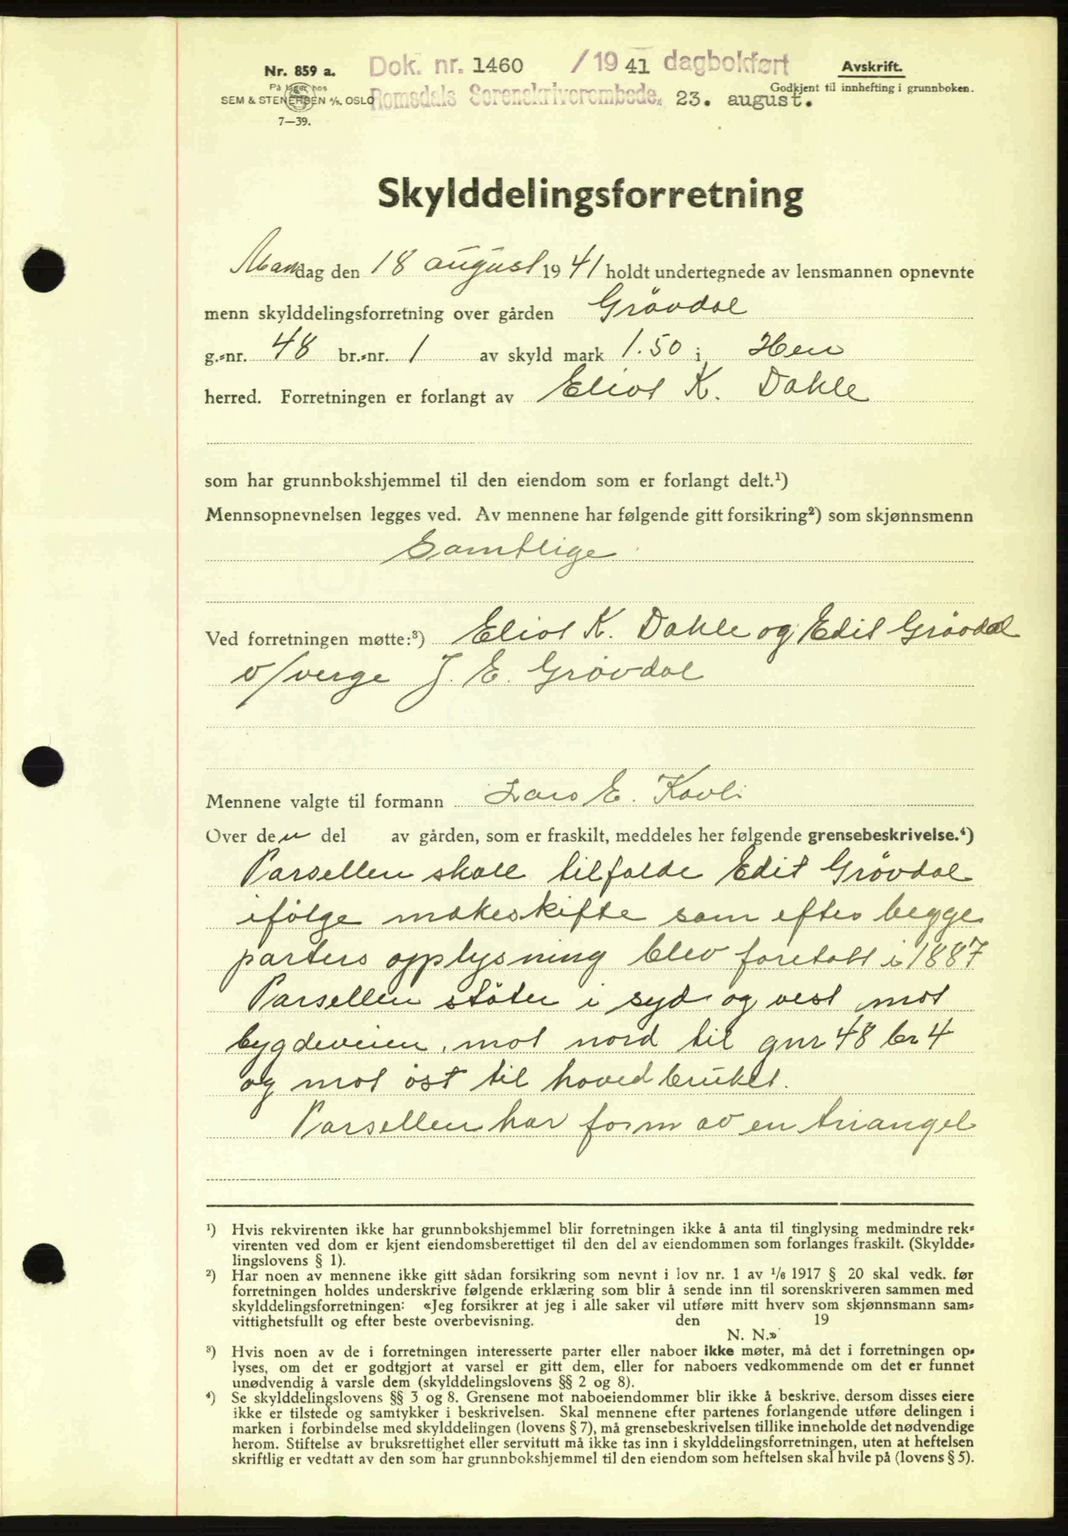 Nr. 859 a.
På lager hos
SEM & STENERSEN A/S, OSLO
7—39.
Dok. nr. 1460 /19 41 dagbokført
Romsdals Sorenskriverembede, 23. august.
Avskrift.
Godkjent til innhefting i grunnboken.
Skylddelingsforretning
Mandag den 18 august 19 41 holdt undertegnede av lensmannen opnevnte
menn skylddelingsforretning over gården Grövdal
g.-nr. 48 br.-nr. 1 av skyld mark 1.50 i Hen
herred. Forretningen er forlangt av Eliot K. Dahle
som har grunnbokshjemmel til den eiendom som er forlangt delt.¹)
Mennsopnevnelsen legges ved. Av mennene har følgende gitt forsikring²) som skjønnsmenn
Samtlige
Ved forretningen møtte:³) Eliot K. Dahle og Edit Grövdal
v/verge J. E. Grövdal
Mennene valgte til formann Lars E. Kavli
Over den del av gården, som er fraskilt, meddeles her følgende grensebeskrivelse.⁴)
Parsellen skall tilfalde Edit Grövdal
ifölge makeskifte som efter begge
parters opplysning blev foretatt i 1887
Parsellen stöter i syd og vest mot
bygdeveien, mot nord til gnr 48 br 4
og mot öst til hovedbruket.
Parsellen har form av en triangel
¹) Hvis rekvirenten ikke har grunnbokshjemmel blir forretningen ikke å anta til tinglysing medmindre rek-
virenten ved dom er kjent eiendomsberettiget til den del av eiendommen som forlanges fraskilt. (Skyldde-
lingslovens § 1).
²) Har noen av mennene ikke gitt sådan forsikring som nevnt i lov nr. 1 av 1/6 1917 § 20 skal vedk. før
forretningen holdes underskrive følgende erklæring som blir å sende inn til sorenskriveren sammen med
skylddelingsforretningen: «Jeg forsikrer at jeg i alle saker vil utføre mitt hverv som skjønnsmann sam-
vittighetsfullt og efter beste overbevisning. den 19
N. N.»
³) Hvis noen av de i forretningen interesserte parter eller naboer ikke møter, må det i forretningen op-
lyses, om det er godtgjort at varsel er gitt dem, eller for naboers vedkommende om det er funnet
unødvendig å varsle dem (skylddelingslovens §§ 2 og 8).
⁴) Se skylddelingslovens §§ 3 og 8. Grensene mot naboeiendommer blir ikke å beskrive, dersom disses eiere
ikke er tilstede og samtykker i beskrivelsen. Skal mennene efter partenes forlangende utføre delingen i
marken i forbindelse med skylddelingen (lovens § 7), må grensebeskrivelsen tillike inneholde det nødvendige
herom. Stiftelse av bruksrettighet eller servitutt må ikke tas inn i skylddelingsforretningen, uten at heftelsen
skriftlig er vedtatt av den som har grunnbokshjemmel til den eiendom som heftelsen skal hvile på (lovens § 5).